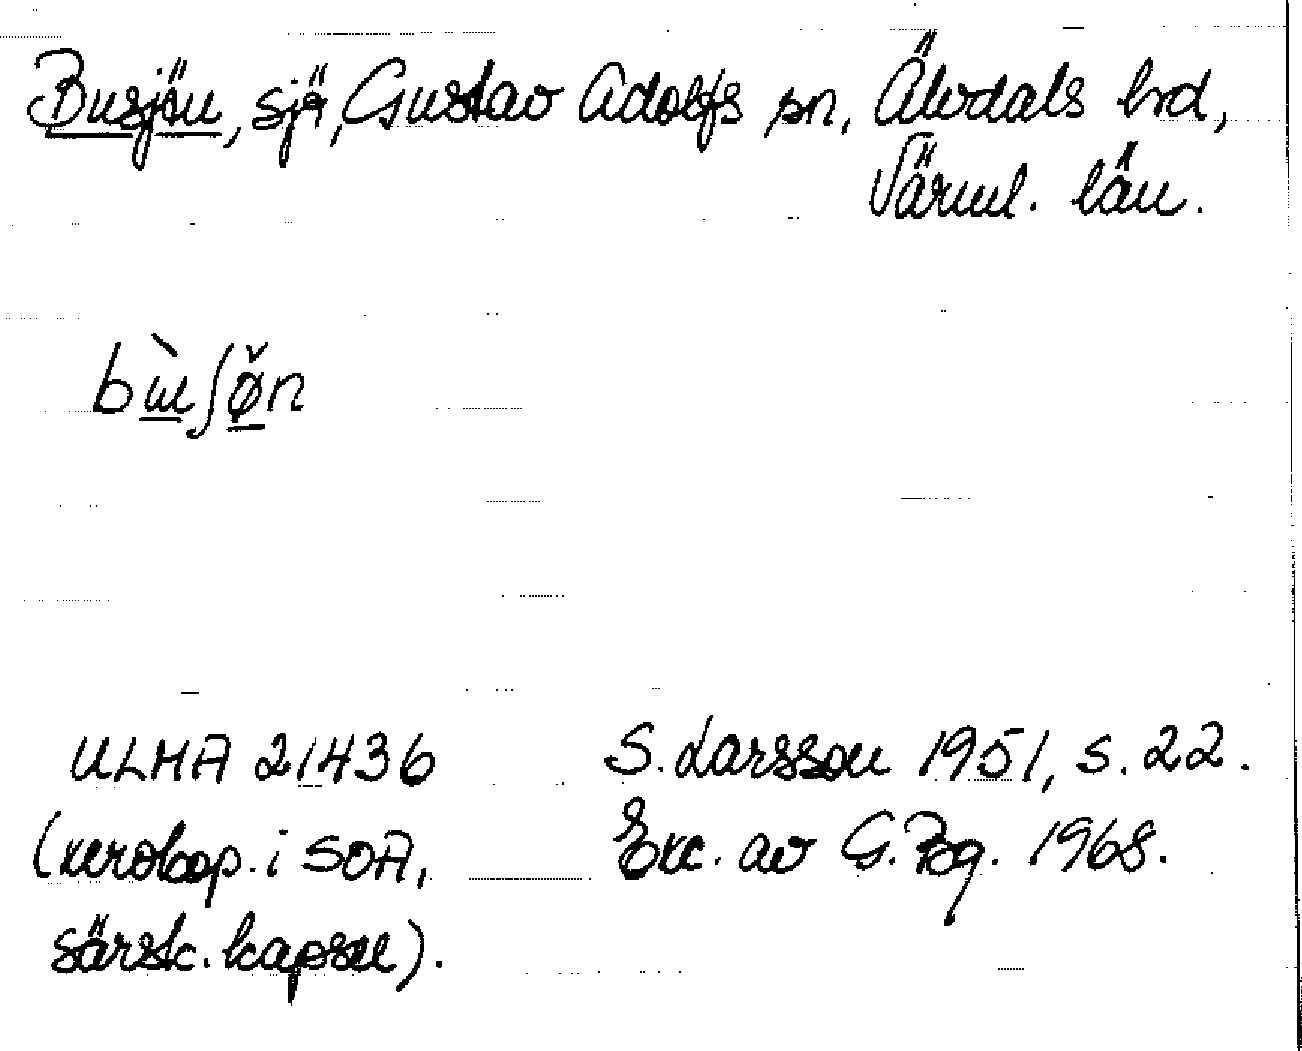 Busjön, sjö, Gustav Adolfs sn, Älvdals hd,
Värml. län.
bùʃø̌n
ULMA 21436
(xerokop. i SOA,
särsk. kapsel).
S. Larsson 1951, s. 22.
Exc. av G. 1968.